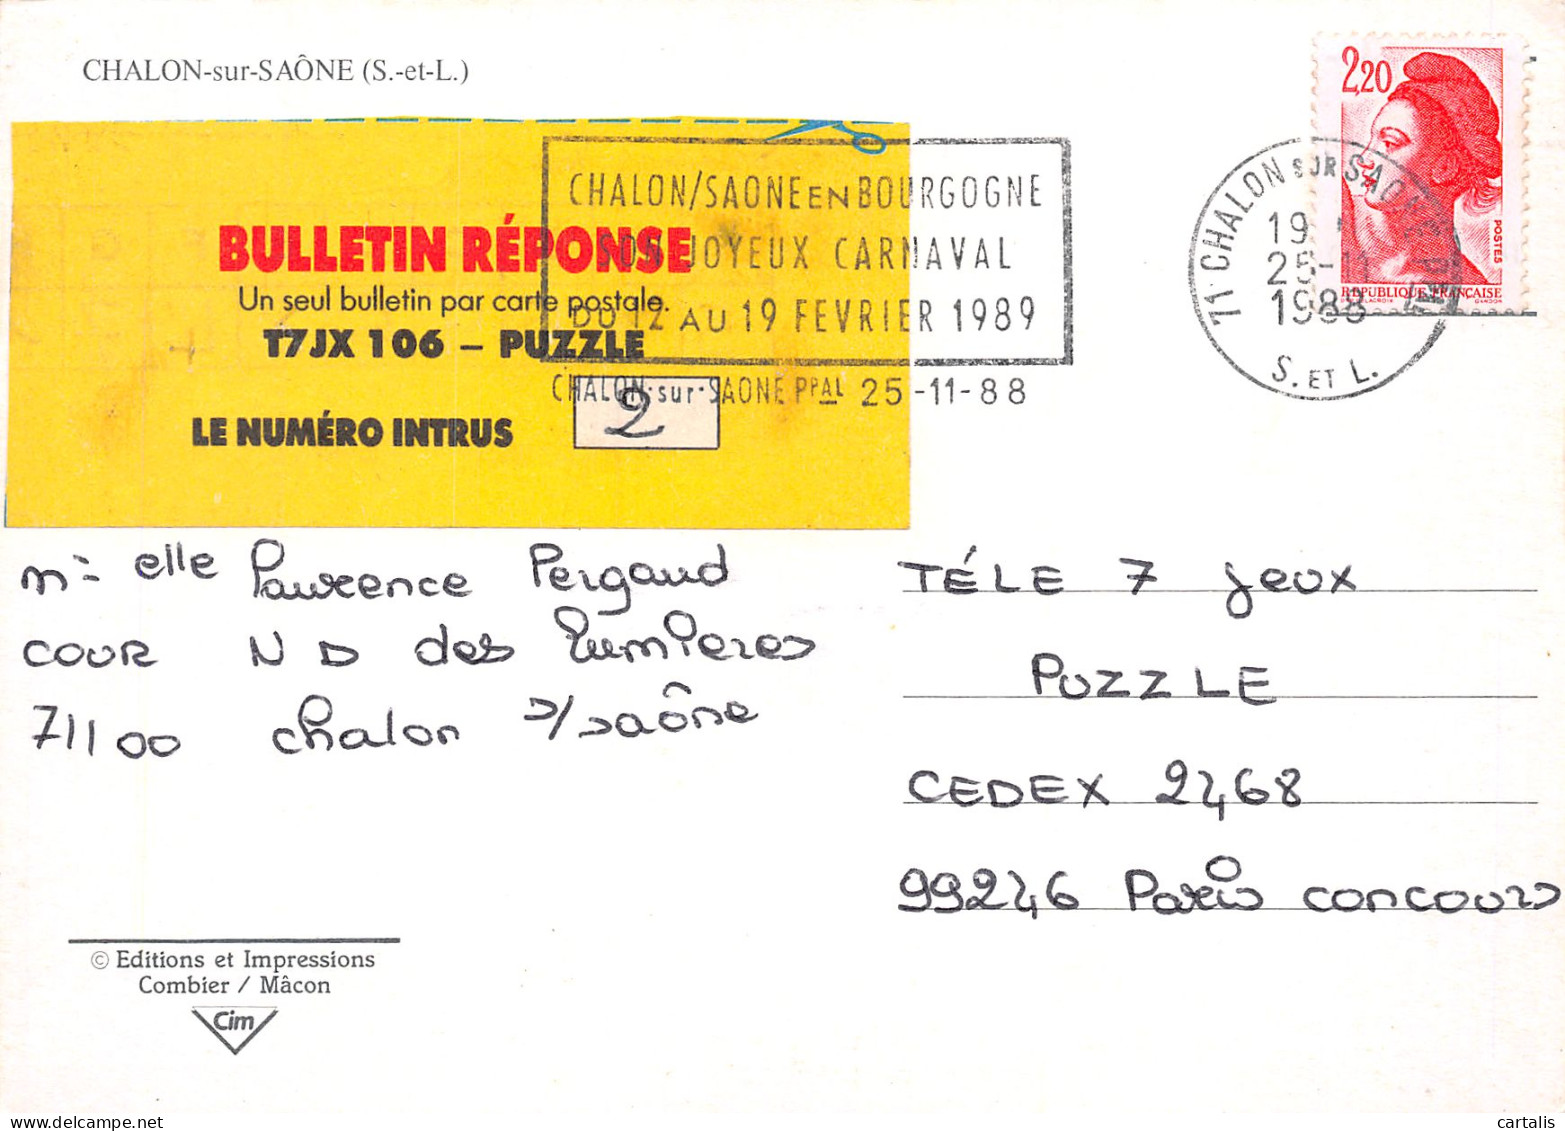 CHALON-sur-SAÔNE (S.-et-L.)
BULLETIN RÉPONSE
Un seul bulletin par carte postale.
T7JX 106 – PUZZLE
LE NUMÉRO INTRUS
2
CHALON/SAONE EN BOURGOGNE
SON JOYEUX CARNAVAL
DU 12 AU 19 FEVRIER 1989
CHALON-sur-SAONE PPAL 25-11-88
71 CHALON SUR SAONE
19
25-11
1988
S. ET L.
2,20
POSTES
REPUBLIQUE FRANÇAISE
GANDON
melle Laurence Pergaud
COUR N D des lumieres
71100 chalon s/saône
TÉLE 7 jeux
PUZZLE
CEDEX 2468
99246 Paris concours
© Editions et Impressions
Combier / Mâcon
Cim
cartalis